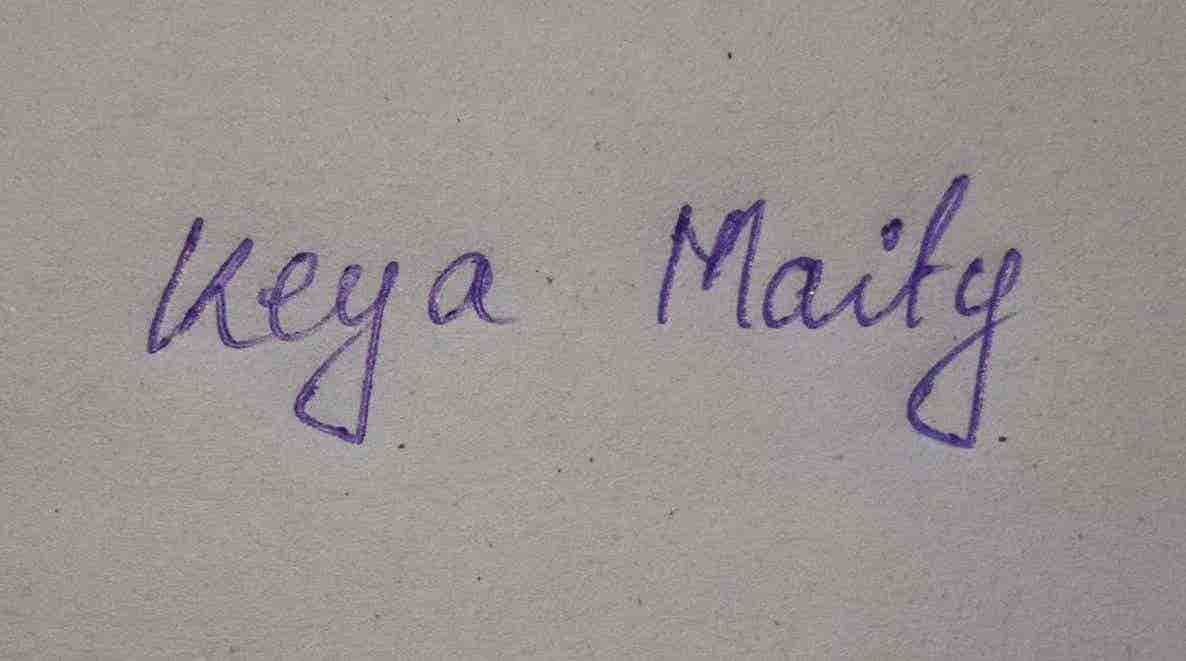 Keya Maity